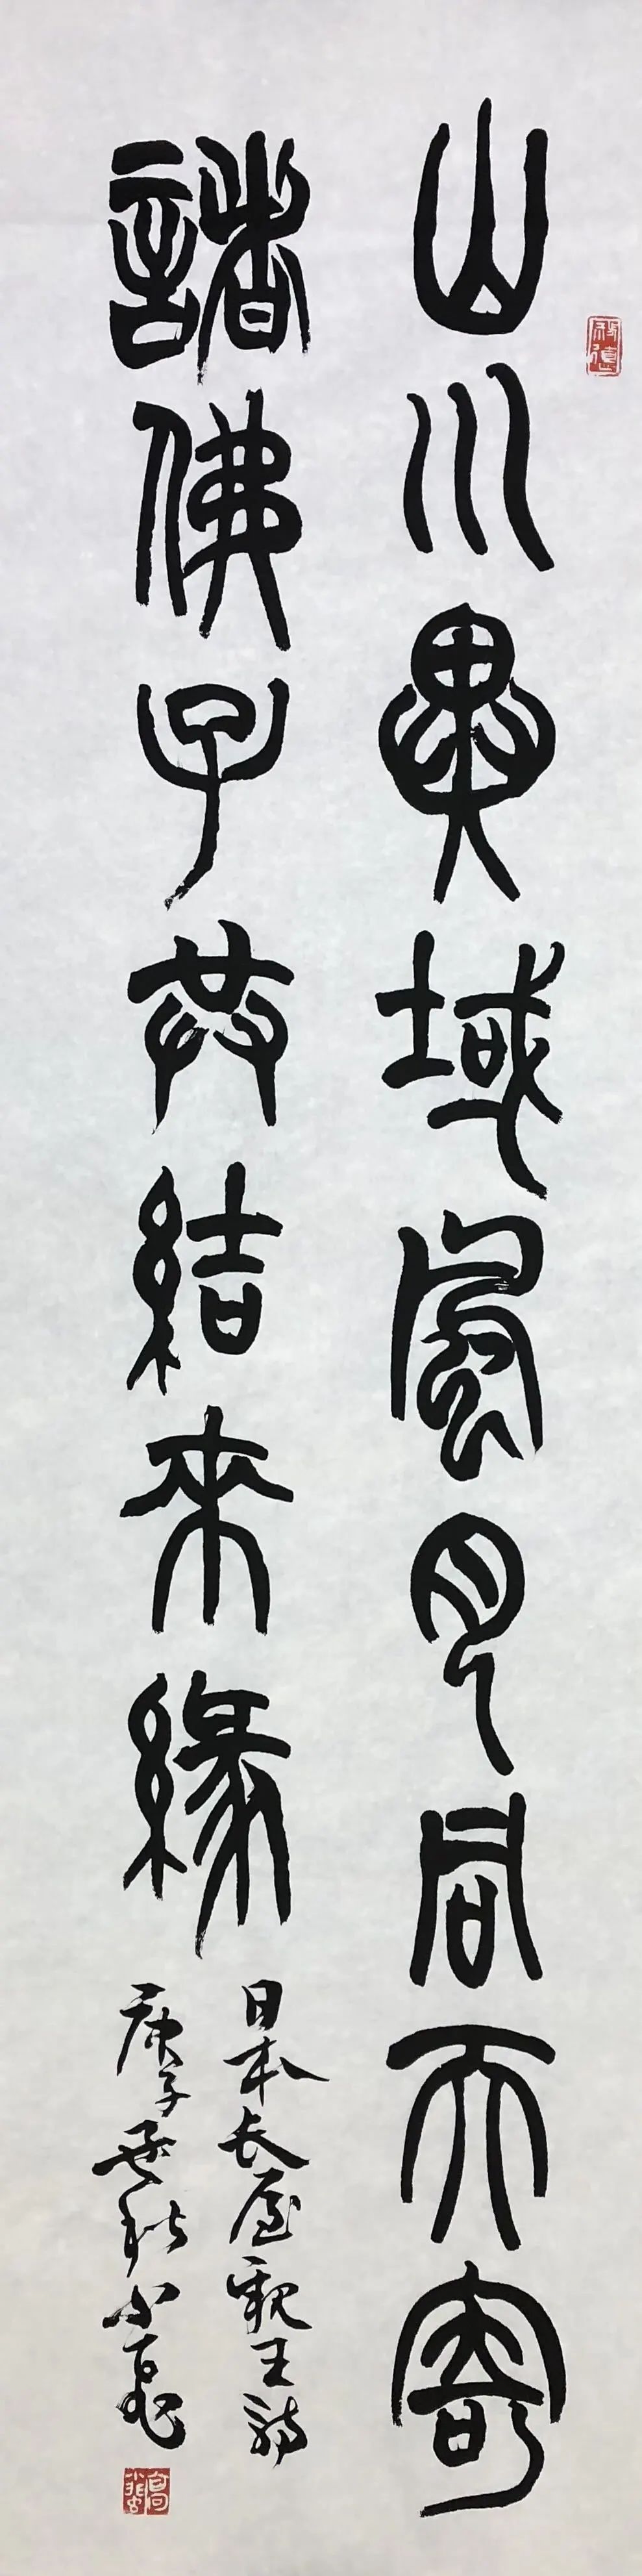 山川異域風月同天寄
諸佛子共結來緣
日本长屋親王詩
庚子